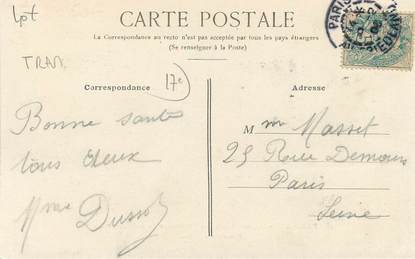 Lpt
CARTE POSTALE
La Correspondance au recto n'est pas acceptée par tous les pays étrangers
(Se renseigner à la Poste)
TRAM
17e
Correspondance
Adresse
PARIS
Bonne santé
tous deux
Mme
Mme Masset
25 Rue Demours
Paris
Seine